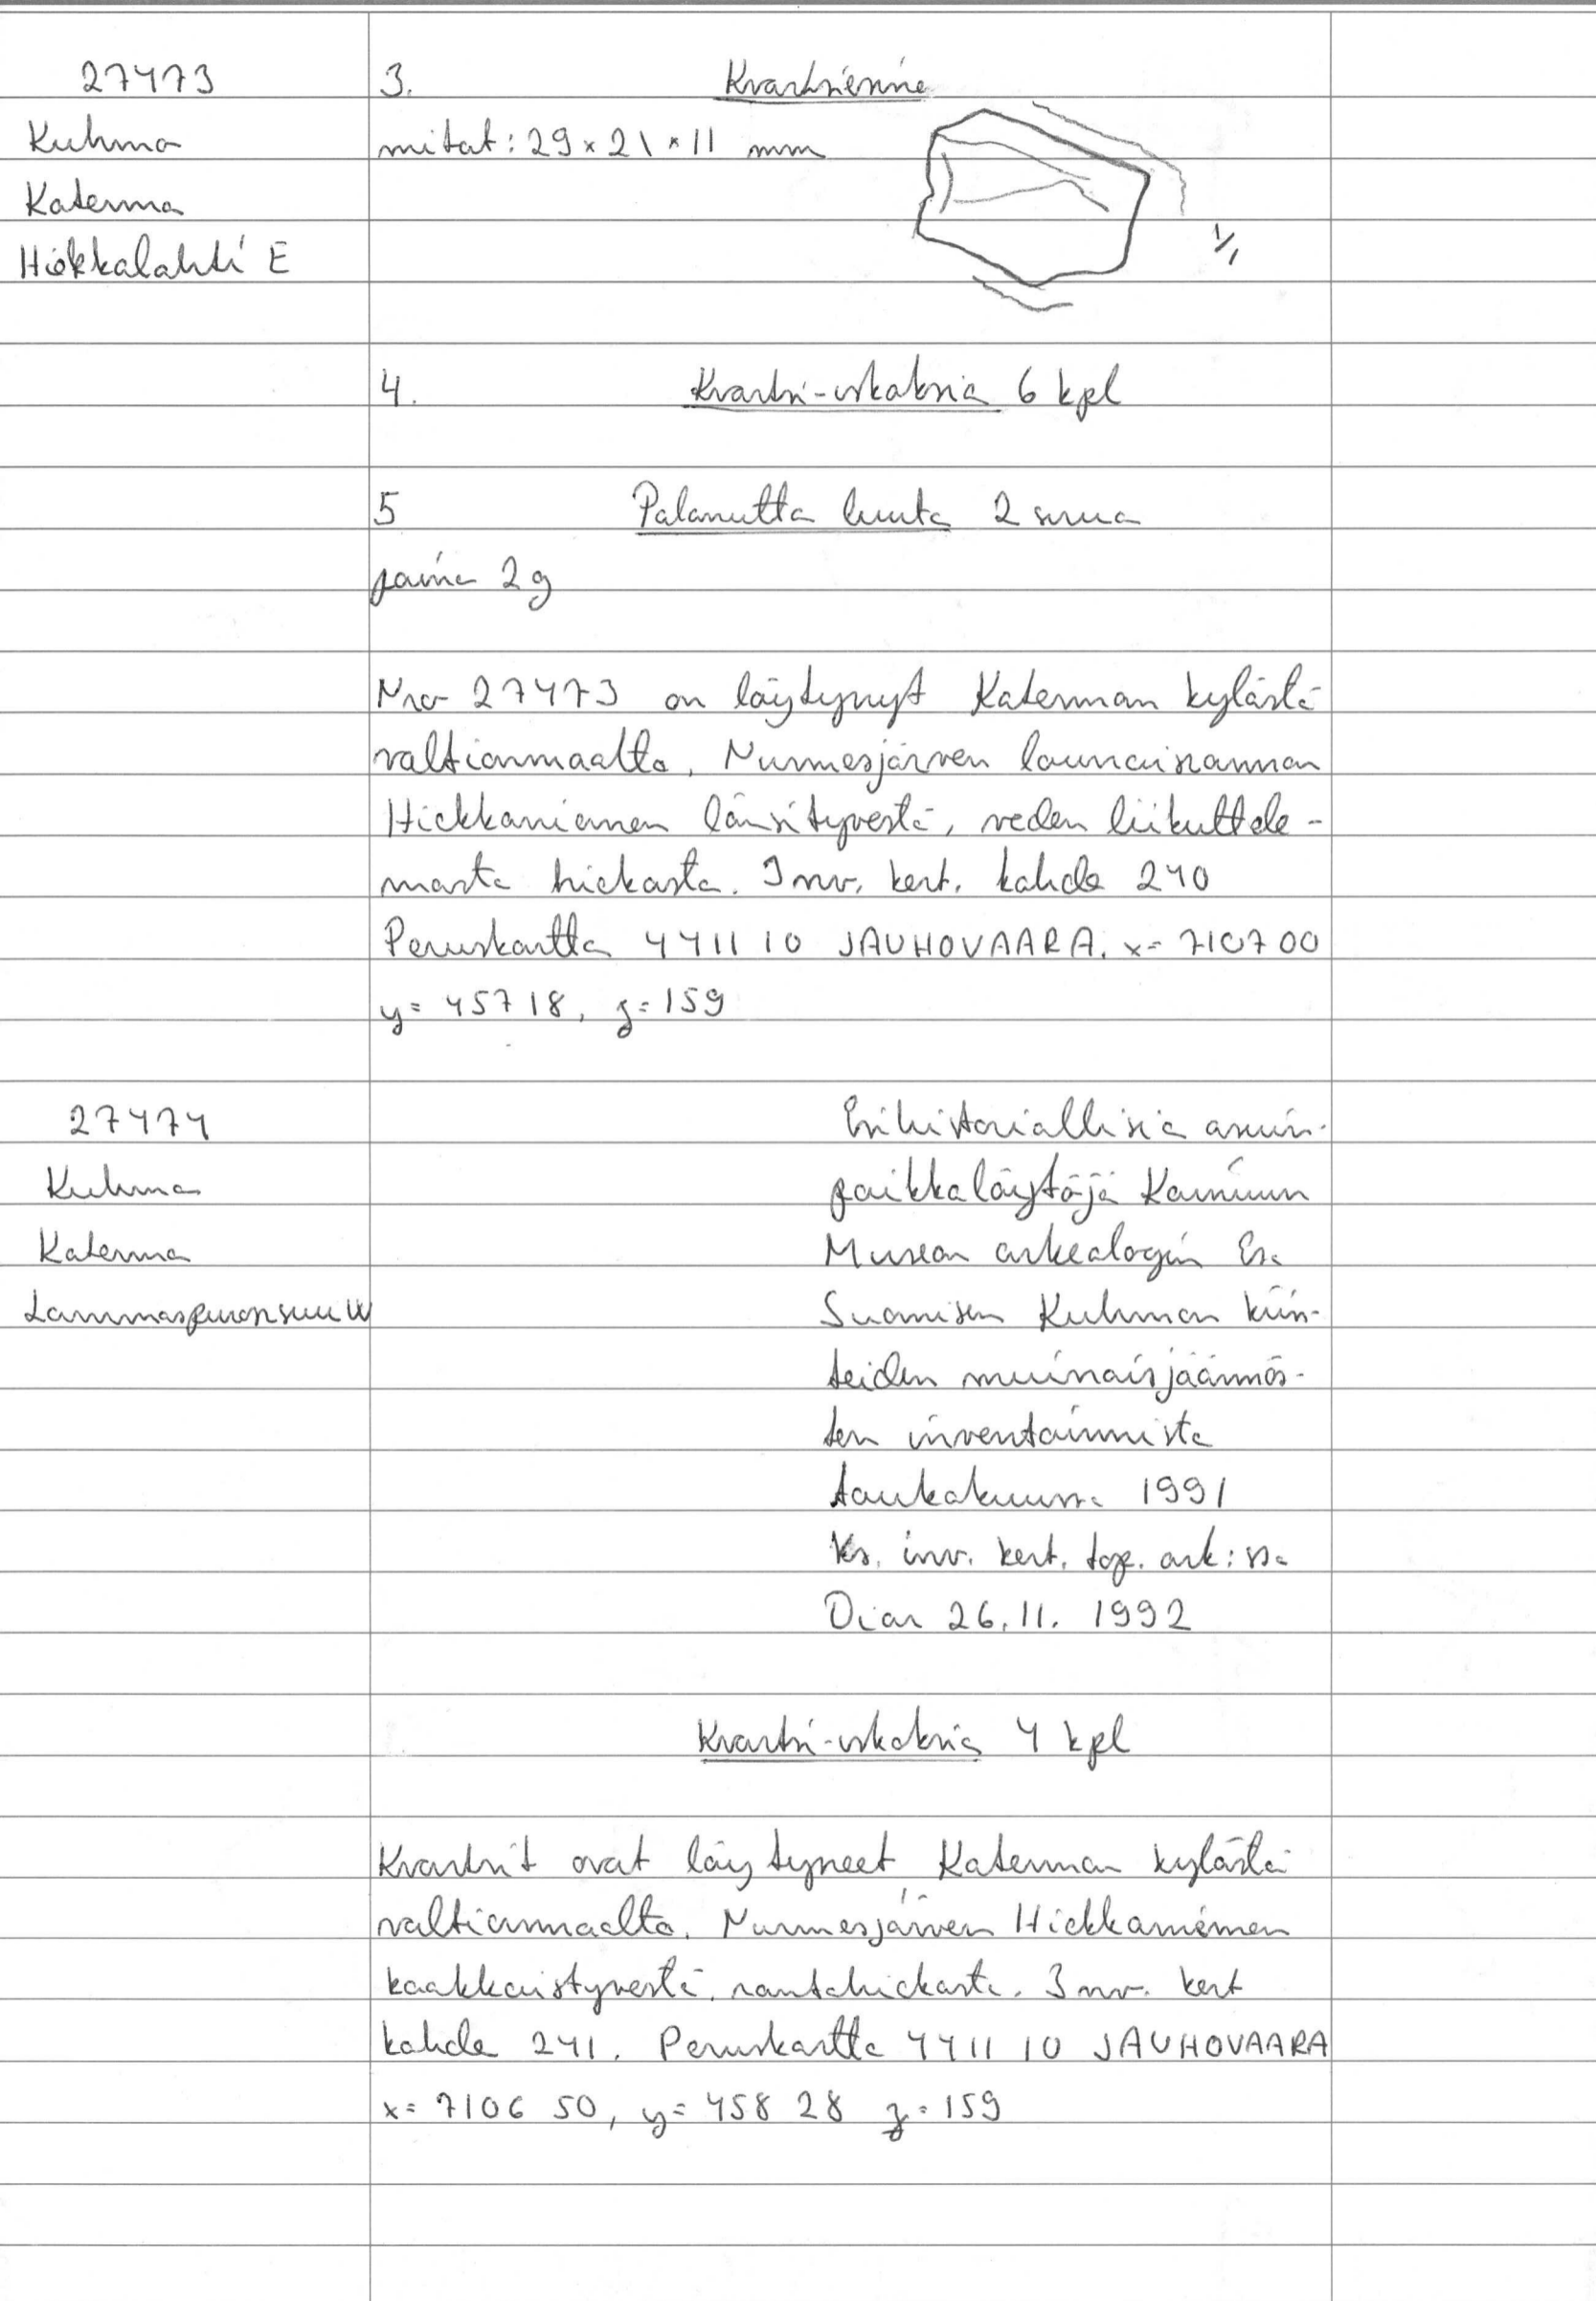 27473
Kuhmo
Katerma
Hiekkalahti E
3. Kvartsiesine
mitat: 29 x 21 x 11 mm
1/1
4. Kvartsi-iskoksia 6 kpl
5 Palanutta luuta 2 sirua
paino 2g
Nro 27473 on löytynyt Katerman kylästä
valtionmaalta, Nurmesjärven lounaisrannan
Hiekkaniemen länsityvestä, veden liikuttele-
masta hiekasta. Inv. kert. kohde 240
Peruskartta 4411 10 JAUHOVAARA. x= 7107 00
y= 457 18, z=159
27474
Kuhmo
Katerma
Lammaspuronsuu W
Esihistoriallisia asuin-
paikkalöytöjä Kainuun
Museon arkeologin Esa
Suomisen Kuhmon kiin-
teiden muinaisjäännös-
ten inventoinnista
toukokuussa 1991
Ks. inv. kert. top. ark:ssa
Diar 26.11. 1992
Kvartsi-iskoksia 4 kpl
Kvartsit ovat löytyneet Katerman kylästä
valtionmaalta, Nurmesjärven Hiekkaniemen
kaakkoistyvestä, rantahiekasta. Inv. kert
kohde 241. Peruskartta 4411 10 JAUHOVAARA
x= 7106 50, y= 458 28 z=159